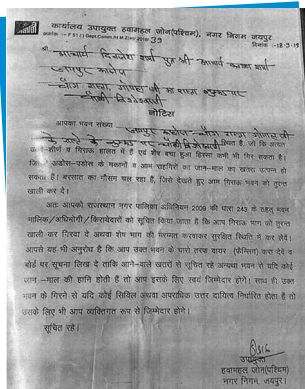 कार्यालय उपायुक्त हवामहल जोन(पश्चिम), नगर निगम जयपुर
क्रमांक :- F 51 ( ) Dept.Comm./H.M.Z 39
दिनांक :-18-9-19
श्री आचार्य
जयपुर
चौकड़ी
नोटिस
आपका भवन संख्या
स्थित है जो कि अत्यंत
जीर्ण-शीर्ण व गिराऊ हालत में है एवं शेष बचा हुआ हिस्सा कभी भी गिर सकता है।
जिससे अडोस-पडोस के मकानों व आम राहगिरों का जान-माल का खतरा उत्पन्न हो
सकता है। बरसात का मौसम चल रहा हैं, जिसे देखते हुए आम गिराऊ भवन को तुरन्त
खाली कर दे।
अतः आपको राजस्थान नगर पालिका अधिनियम-2009 की धारा 243 के तहत भवन
मालिक/अधिभोगी/किरायेदारों को सूचित किया जाता हैं कि आप गिराऊ भाग को तुरन्त
खाली कर गिरवा दे अथवा शेष भाग की मरम्मत करवाकर सुरक्षित स्थिति में कर लेवें।
आपसे यह भी अनुरोध हैं कि आप उक्त भवन के चारो तरफ वायर (फेन्सिग) करा देवे व
बोर्ड पर सूचना लिख दे ताकि आने-वाले खतरों से सूचित रहे अन्यथा भवन से यदि कोई
जान –माल की हानि होती हैं तो आप इसके लिए स्वयं जिम्मेदार होगें। साथ ही उक्त
भवन के गिरने से यदि कोई सिविल अथवा अपराधिक उत्तर दायित्व निर्धारित होता हैं तो
उसके लिए भी आप व्यक्तिगत रूप से जिम्मेदार होगे।
सूचित रहे।
उपायुक्त
हवामहल जोन(पश्चिम)
नगर निगम, जयपुर।